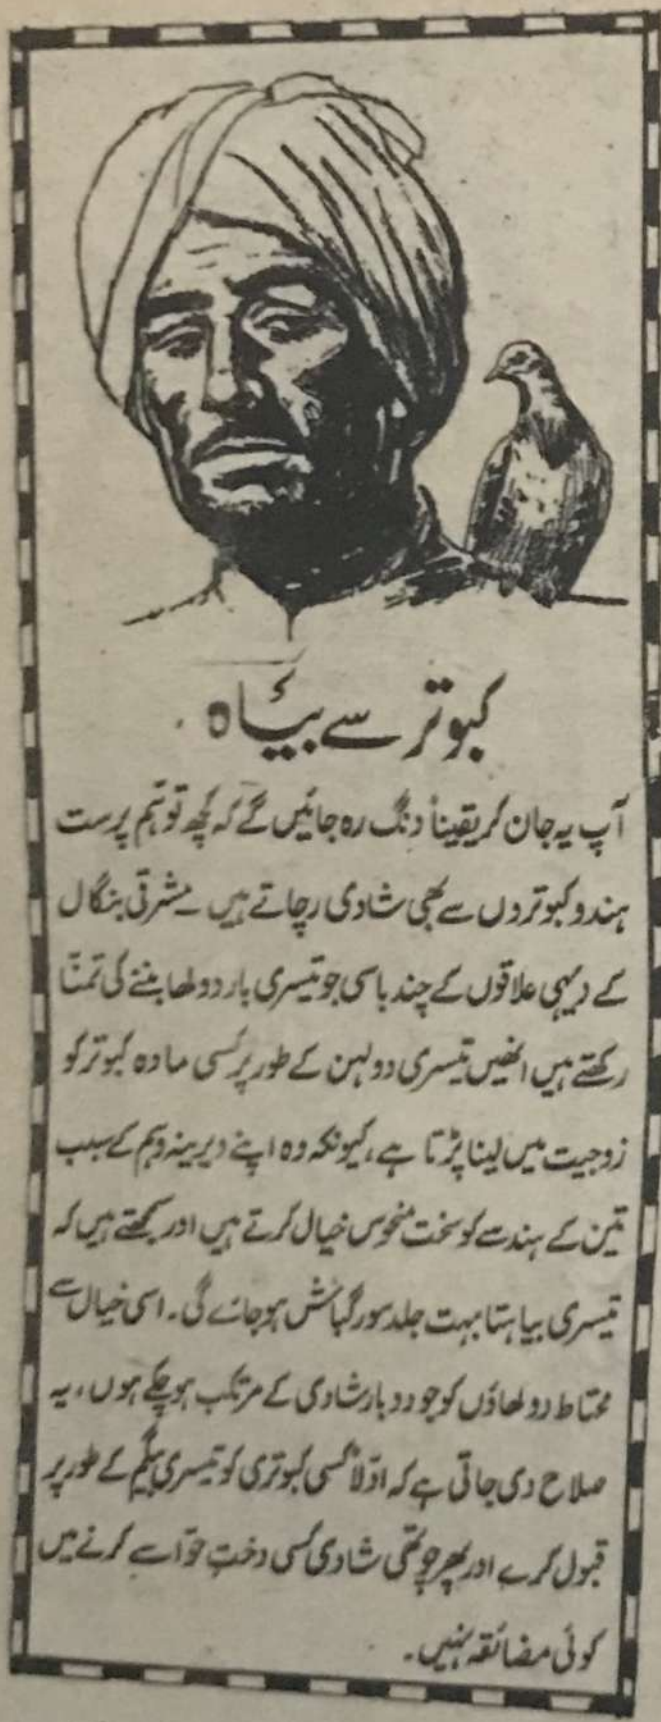 کبوتر سے بیاہ
آپ یہ جان کر یقیناً دنگ رہ جائیں گے کہ کچھ توہّم پرست
ہندو کبوتروں سے بھی شادی رچاتے ہیں ۔ مشرقی بنگال
کے دیہی علاقوں کے چند باسی جو تیسری بار دولھا بننے کی تمنّا
رکھتے ہیں انھیں تیسری دولہن کے طور پر کسی مادہ کبوتر کو
زوجیت میں لینا پڑتا ہے، کیونکہ وہ اپنے دیرینہ وہم کے سبب
تین کے ہندسے کو سخت منحوس خیال کرتے ہیں اور سمجھتے ہیں کہ
تیسری بیاہتا بہت جلد سورگباش ہو جائے گی۔ اسی خیال سے
محتاط دولھاؤں کو جو دوبار شادی کے مرتکب ہو چکے ہوں، یہ
صلاح دی جاتی ہے کہ اوّلاً کسی کبوتری کو تیسری بیگم کے طور پر
قبول کرے اور پھر چوتھی شادی کسی دخترِ حوّا سے کرنے میں
کوئی مضائقہ نہیں۔